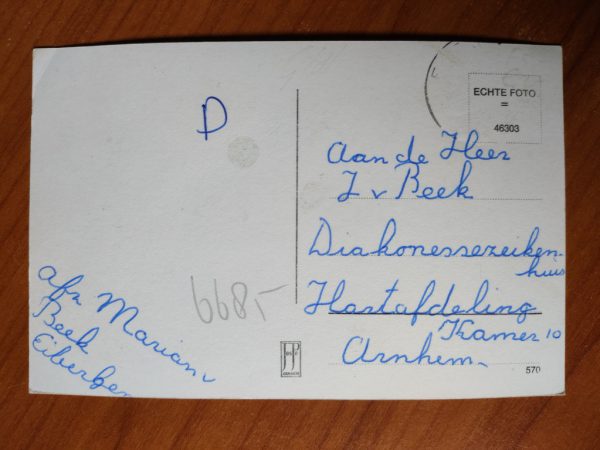 D
ECHTE FOTO
=
46303
Aan de Heer
J v Beek
Diakonessezieken-
huis
Hartafdeling
Kamer 10
Arnhem.
afz Marian v
Beek
Eibergen
6681-
570